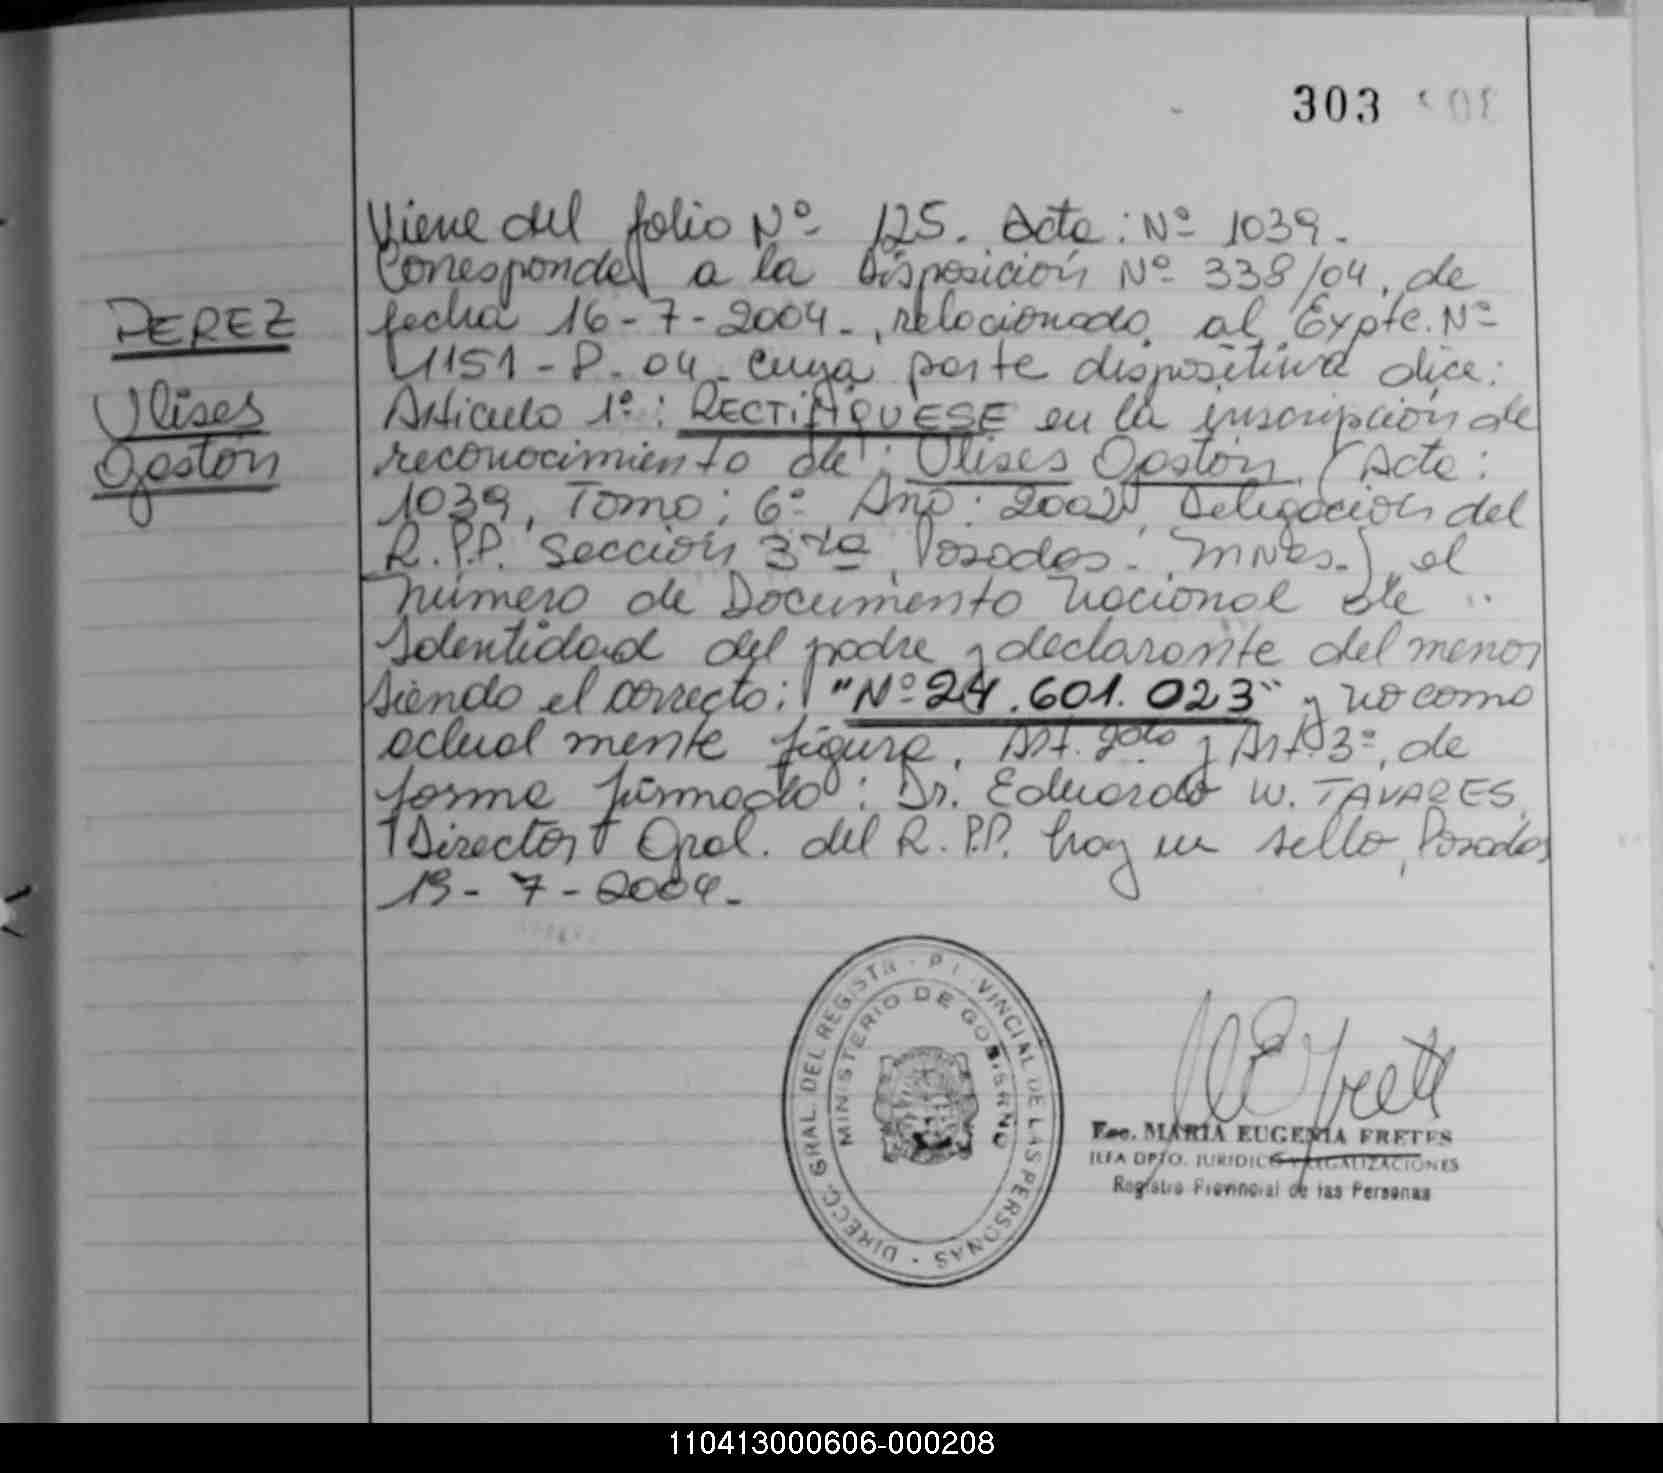 303
Viene del folio Nº 125. Acta: Nº 1039.
Corresponde a la Disposición Nº 338/04, de
PEREZ
fecha 16-7-2004-, relacionado al Expte. Nº
1151-P-04. cuya parte dispositiva dice:
Ulises
Articulo 1º: RECTIFIQUESE en la inscripción de
Gastón
reconocimiento de: Ulises Gastón (Acta:
1039, Tomo: 6º Año: 2002, Delegación del
R.P.P. Sección 3ra, Posadas. Mnes.) el
número de Documento Nacional de
Identidad del padre y declarante del menor
siendo el correcto: "Nº 24.601.023" y no como
actual mente figura. Art. 2do y Art. 3º, de
forma firmado: Dr. Eduardo W. TAVARES,
Director Gral. del R.P.P. hay un sello, Posadas
19-7-2004.-
DIRECC. GRAL. DEL REGISTR - P VINCIAL DE LAS PERSONAS
MINISTERIO DE GOBIERNO
Esc. MARIA EUGENIA FRETES
JEFA DPTO. JURIDICO Y LEGALIZACIONES
Registro Provincial de las Personas
110413000606-000208